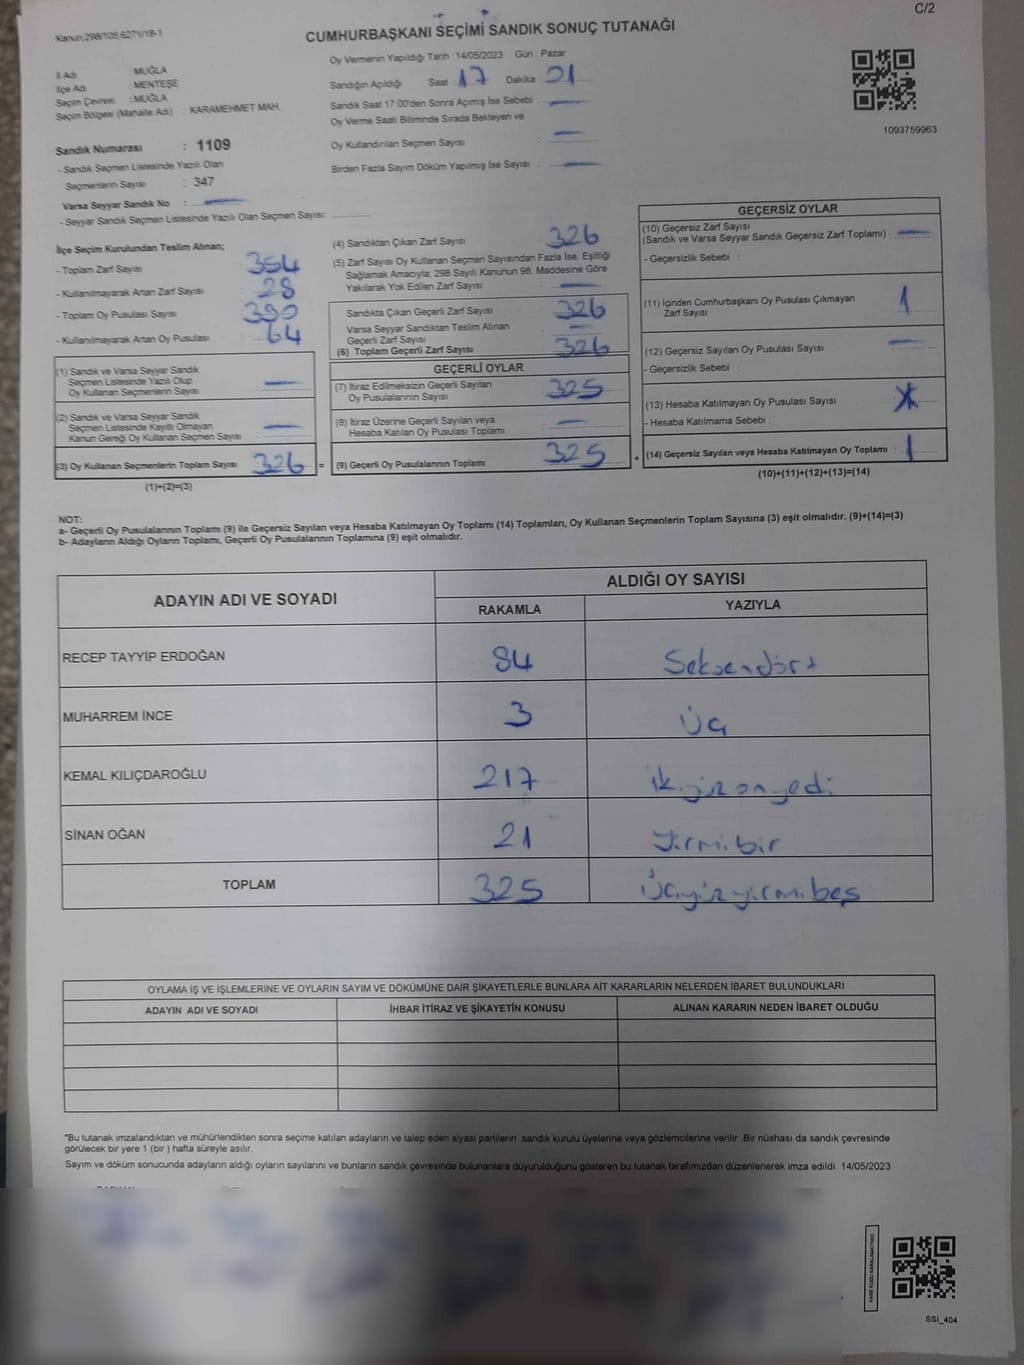 C/2
Kanun:298/105,6271/18-1
CUMHURBAŞKANI SEÇİMİ SANDIK SONUÇ TUTANAĞI
Oy Vermenin Yapıldığı Tarih :14/05/2023 Gün : Pazar
İl Adı : MUĞLA
İlçe Adı : MENTEŞE
Seçim Çevresi : MUĞLA
Seçim Bölgesi (Mahalle Adı) : KARAMEHMET MAH.
Sandığın Açıldığı Saat 17 Dakika 01
Sandık Saat 17:00'den Sonra Açımış İse Sebebi :
Oy Verme Saati Bitiminde Sırada Bekleyen ve
Oy Kullandırılan Seçmen Sayısı :
Birden Fazla Sayım Döküm Yapılmış İse Sayısı :
1093759963
Sandık Numarası : 1109
- Sandık Seçmen Listesinde Yazılı Olan
Seçmenlerin Sayısı : 347
Varsa Seyyar Sandık No :
- Seyyar Sandık Seçmen Listesinde Yazılı Olan Seçmen Sayısı:
İlçe Seçim Kurulundan Teslim Alınan;
- Toplam Zarf Sayısı : 354
- Kullanılmayarak Artan Zarf Sayısı : 28
- Toplam Oy Pusulası Sayısı : 390
- Kullanılmayarak Artan Oy Pusulası : 64
(1) Sandık ve Varsa Seyyar Sandık
Seçmen Listesinde Yazılı Olup
Oy Kullanan Seçmenlerin Sayısı :
(2) Sandık ve Varsa Seyyar Sandık
Seçmen Listesinde Kayıtlı Olmayan
Kanun Gereği Oy Kullanan Seçmen Sayısı :
(3) Oy Kullanan Seçmenlerin Toplam Sayısı : 326 =
(1)+(2)=(3)
(4) Sandıktan Çıkan Zarf Sayısı : 326
(5) Zarf Sayısı Oy Kullanan Seçmen Sayısından Fazla İse, Eşitliği
Sağlamak Amacıyla; 298 Sayılı Kanunun 98. Maddesine Göre
Yakılarak Yok Edilen Zarf Sayısı :
Sandıkta Çıkan Geçerli Zarf Sayısı : 326
Varsa Seyyar Sandıktan Teslim Alınan
Geçerli Zarf Sayısı :
(6) Toplam Geçerli Zarf Sayısı : 326
GEÇERLİ OYLAR
(7) İtiraz Edilmeksizin Geçerli Sayılan
Oy Pusulalarının Sayısı : 325
(8) İtiraz Üzerine Geçerli Sayılan veya
Hesaba Katılan Oy Pusulası Toplamı :
(9) Geçerli Oy Pusulalarının Toplamı : 325 +
GEÇERSİZ OYLAR
(10) Geçersiz Zarf Sayısı
(Sandık ve Varsa Seyyar Sandık Geçersiz Zarf Toplamı) :
- Geçersizlik Sebebi :
(11) İçinden Cumhurbaşkanı Oy Pusulası Çıkmayan
Zarf Sayısı : 1
(12) Geçersiz Sayılan Oy Pusulası Sayısı :
- Geçersizlik Sebebi :
(13) Hesaba Katılmayan Oy Pusulası Sayısı :
- Hesaba Katılmama Sebebi :
(14) Geçersiz Sayılan veya Hesaba Katılmayan Oy Toplamı : 1
(10)+(11)+(12)+(13)=(14)
NOT:
a- Geçerli Oy Pusulalarının Toplamı (9) ile Geçersiz Sayılan veya Hesaba Katılmayan Oy Toplamı (14) Toplamları, Oy Kullanan Seçmenlerin Toplam Sayısına (3) eşit olmalıdır. (9)+(14)=(3)
b- Adayların Aldığı Oyların Toplamı, Geçerli Oy Pusulalarının Toplamına (9) eşit olmalıdır.
ADAYIN ADI VE SOYADI ALDIĞI OY SAYISI
RAKAMLA YAZIYLA
RECEP TAYYİP ERDOĞAN 84 Seksendört
MUHARREM İNCE 3 Üç
KEMAL KILIÇDAROĞLU 217 ikiyüzonyedi
SİNAN OĞAN 21 Yirmibir
TOPLAM 325 Üçyüzyirmibeş
OYLAMA İŞ VE İŞLEMLERİNE VE OYLARIN SAYIM VE DÖKÜMÜNE DAİR ŞİKAYETLERLE BUNLARA AİT KARARLARIN NELERDEN İBARET BULUNDUKLARI
ADAYIN ADI VE SOYADI İHBAR İTİRAZ VE ŞİKAYETİN KONUSU ALINAN KARARIN NEDEN İBARET OLDUĞU
"Bu tutanak imzalandıktan ve mühürlendikten sonra seçime katılan adayların ve talep eden siyasi partilerin sandık kurulu üyelerine veya gözlemcilerine verilir. Bir nüshası da sandık çevresinde
görülecek bir yere 1 (bir ) hafta süreyle asılır.
Sayım ve döküm sonucunda adayların aldığı oyların sayılarını ve bunların sandık çevresinde bulunanlara duyurulduğunu gösteren bu tutanak tarafımızdan düzenlenerek imza edildi. 14/05/2023
SSI_404